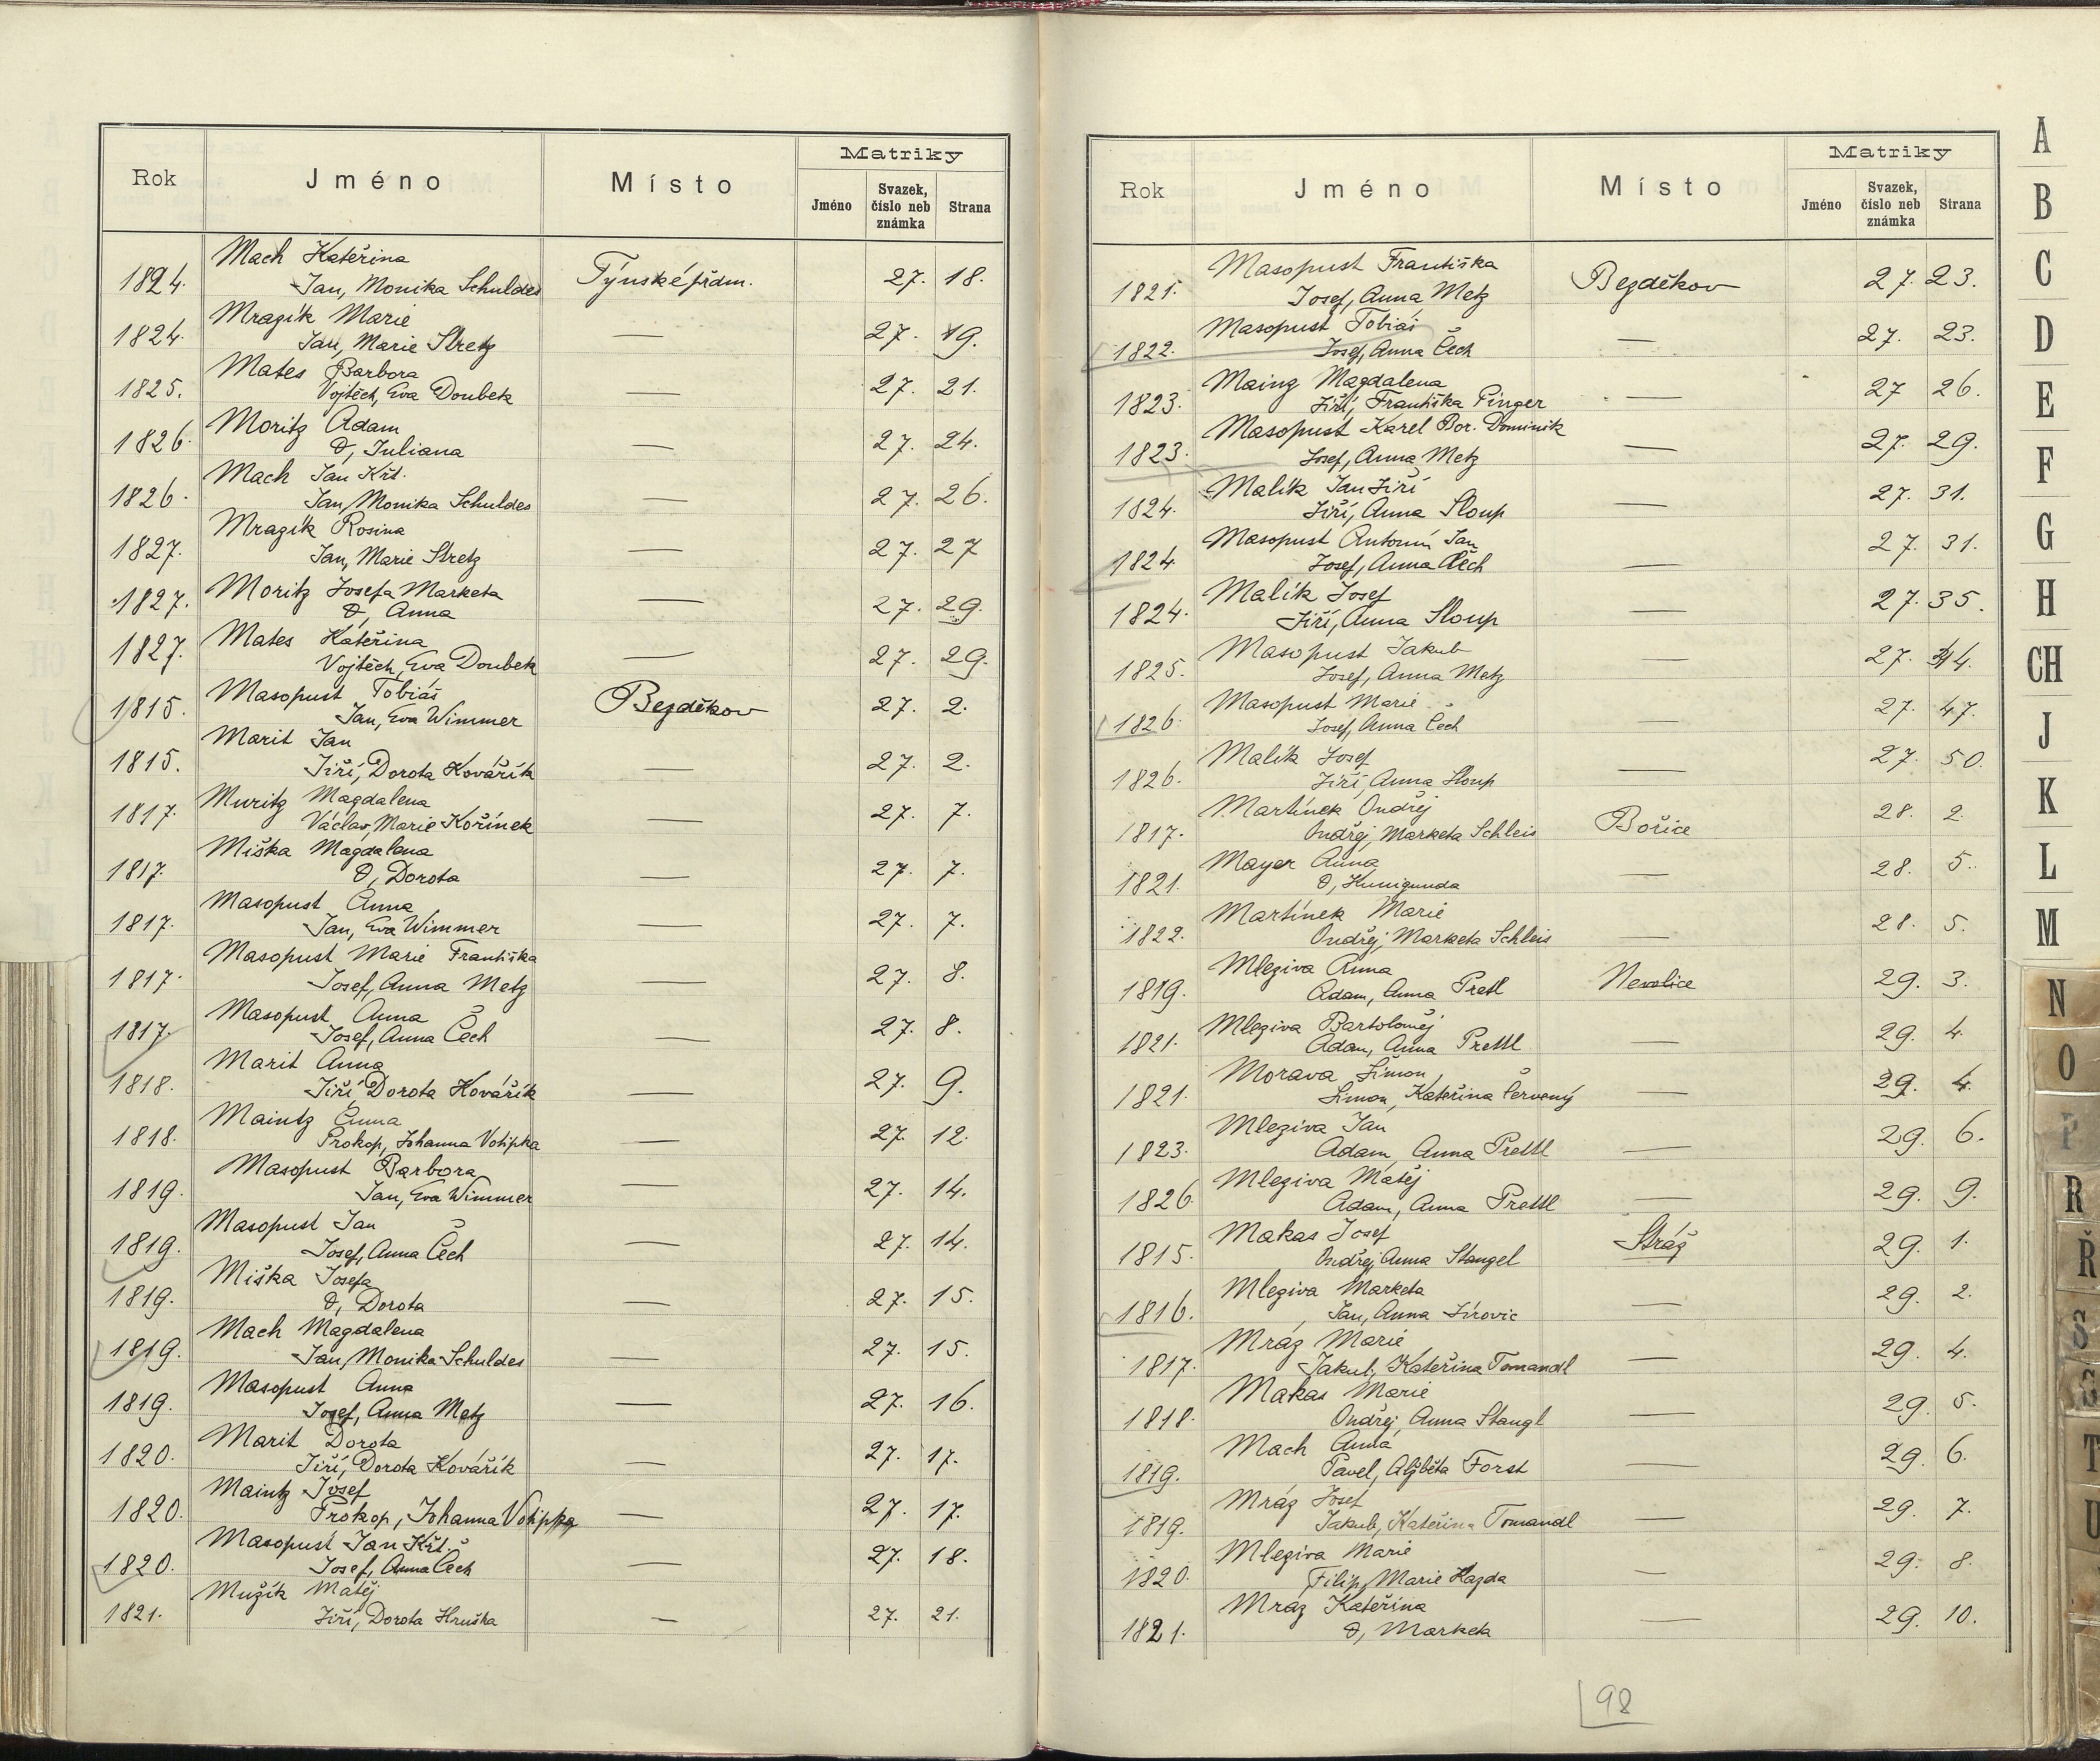 Rok Jméno Místo Matriky
Jméno Svazek, číslo neb známka Strana
Mach Kateřina
1824. Jan, Monika Schuldes Týnské předm. 27. 18.
Mrazík Marie
1824. Jan, Marie Stretz — 27. 19.
Mates Barbora
1825. Vojtěch, Eva Doubek — 27. 21.
Moritz Adam
1826. O, Juliana — 27. 24.
Mach Jan Křt.
1826. Jan, Monika Schuldes — 27. 26.
Mrazík Rosina
1827. Jan, Marie Stretz — 27. 27
Moritz Josefa Marketa
1827. O, Anna — 27. 29.
Mates Kateřina
1827. Vojtěch, Eva Doubek — 27. 29.
Masopust Tobiáš
1815. Jan, Eva Wimmer Bezděkov 27. 2.
Marit Jan
1815. Jiří, Dorota Kovářík — 27. 2.
Muritz Magdalena
1817. Václav, Marie Kořínek — 27. 7.
Miška Magdalena
1817. O, Dorota — 27. 7.
Masopust Anna
1817. Jan, Eva Wimmer — 27. 7.
Masopust Marie Františka
1817. Josef, Anna Metz — 27. 8.
Masopust Anna
1817. Josef, Anna Čech — 27. 8.
Marit Anna
1818. Jiří, Dorota Kovářík — 27. 9.
Maintz Anna
1818. Prokop, Johanna Votipka — 27. 12.
Masopust Barbora
1819. Jan, Eva Wimmer — 27. 14.
Masopust Jan
1819. Josef, Anna Čech — 27. 14.
Miška Josefa
1819. O, Dorota — 27. 15.
Mach Magdalena
1819. Jan, Monika Schuldes — 27. 15.
Masopust Anna
1819. Josef, Anna Metz — 27. 16.
Marit Dorota
1820. Jiří, Dorota Kovářík — 27. 17.
Maintz Josef
1820. Prokop, Johanna Votipka — 27. 17.
Masopust Jan Křt.
1820. Josef, Anna Čech — 27. 18.
Mužík Matěj
1821. Jiří, Dorota Hruška — 27. 21.
Rok Jméno Místo Matriky
Jméno Svazek, číslo neb známka Strana
Masopust Františka
1821. Josef, Anna Metz Bezděkov 27. 23.
Masopust Tobiáš
1822. Josef, Anna Čech — 27. 23.
Mainz Magdalena
1823. Jiří, Františka Pinger — 27 26.
Masopust Karel Bor. Dominik
1823. Josef, Anna Metz — 27. 29.
Malík Jan Jiří
1824. Jiří, Anna Sloup — 27. 31.
Masopust Antonín Jan
1824. Josef, Anna Čech — 27. 31.
Malík Josef
1824. Jiří, Anna Sloup — 27. 35.
Masopust Jakub
1825. Josef, Anna Metz — 27. 44.
Masopust Marie
1826. Josef, Anna Čech — 27. 47.
Malík Josef
1826. Jiří, Anna Sloup — 27. 50.
Martínek Ondřej
1817. Ondřej, Marketa Schleis Bořice 28. 2.
Mayer Anna
1821. O, Kunigunda — 28. 5.
Martínek Marie
1822. Ondřej, Marketa Schleis — 28. 5.
Mleziva Anna
1819. Adam, Anna Pretl Nevolice 29. 3.
Mleziva Bartoloměj
1821. Adam, Anna Prettl — 29. 4.
Morava Šimon
1821. Šimon, Kateřina Červený — 29. 4.
Mleziva Jan
1823. Adam, Anna Prettl — 29. 6.
Mleziva Matěj
1826. Adam, Anna Prettl — 29. 9.
Makas Josef
1815. Ondřej, Anna Stangel Stráž 29. 1.
Mleziva Marketa
1816. Jan, Anna Jírovic — 29. 2.
Mráz Marie
1817. Jakub, Kateřina Tomandl — 29. 4.
Makas Marie
1818. Ondřej, Anna Stangl — 29. 5.
Mach Anna
1819. Pavel, Alžběta Forst — 29. 6.
Mráz Josef
1819. Jakub, Kateřina Tomandl — 29. 7.
Mleziva Marie
1820. Filip, Marie Hazda — 29. 8.
Mráz Kateřina
1821. O, Marketa — 29. 10.
98
A
B
C
D
E
F
G
H
CH
J
K
L
M
N
O
P
R
Ř
S
Š
T
U